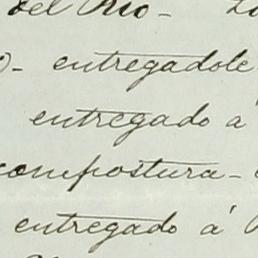 del Rio -
- entregadole
entregado a
compostura -
entregado á